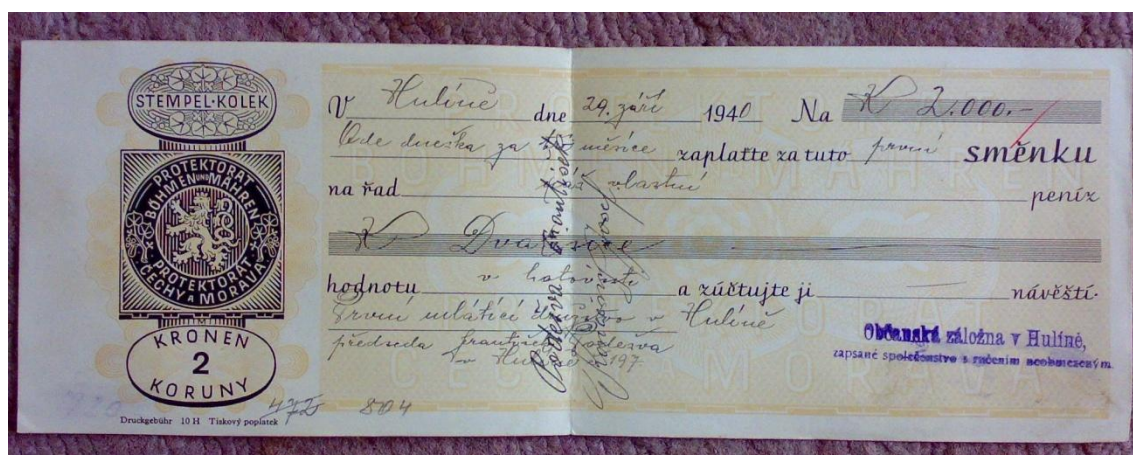 STEMPEL·KOLEK
PROTEKTORAT
BÖHMEN UND MÄHREN
PROTEKTORAT
ČECHY A MORAVA
KRONEN
2
KORUNY
Druckgebühr 10 H Tiskový poplatek
472 804
V Hulíně dne 29. září 1940 Na K 2.000.-
Ode dneška za měsíce zaplaťte za tuto první směnku
na řad vlastní peníz
K Dvatisíce
hodnotu v hotovosti a zúčtujte ji návěští.
První mlátící družstvo v Hulíně
předseda František
v Hulíně 197
Občanská záložna v Hulíně,
zapsané společenstvo s ručením neobmezeným
PROTEKTORAT
BÖHMEN MÄHREN
PROTEKTORAT
ČECHY A MORAVA